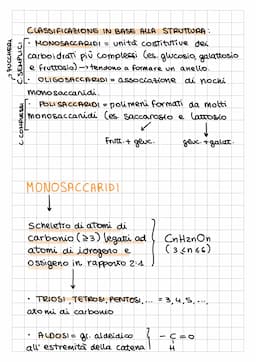 CLASSIFICAZIONE IN BASE ALLA STRUTTURA:
→ ZUCCHERI
C. SEMPLICI
· MONOSACCARIDI = unità costitutive dei
carboidrati più complessi (es. glucosio, galattosio
e fruttosio) → tendono a formare un anello.
· OLIGOSACCARIDI = associazione di pochi
monosaccaridi.
C. COMPLESSI
· POLISACCARIDI = polimeri formati da molti
monosaccaridi (es. saccarosio e lattosio
Frutt. + gluc. gluc. + galatt.
MONOSACCARIDI
Scheletro di atomi di
carbonio (≥3) legati ad
atomi di idrogeno e
ossigeno in rapporto 2:1
CnH2nOn
(3≤n≤6)
· TRIOSI, TETROSI, PENTOSI, ... = 3, 4, 5, ...
atomi di carbonio
· ALDOSI = gr. aldeidico
all'estremità della catena
- C = O
H